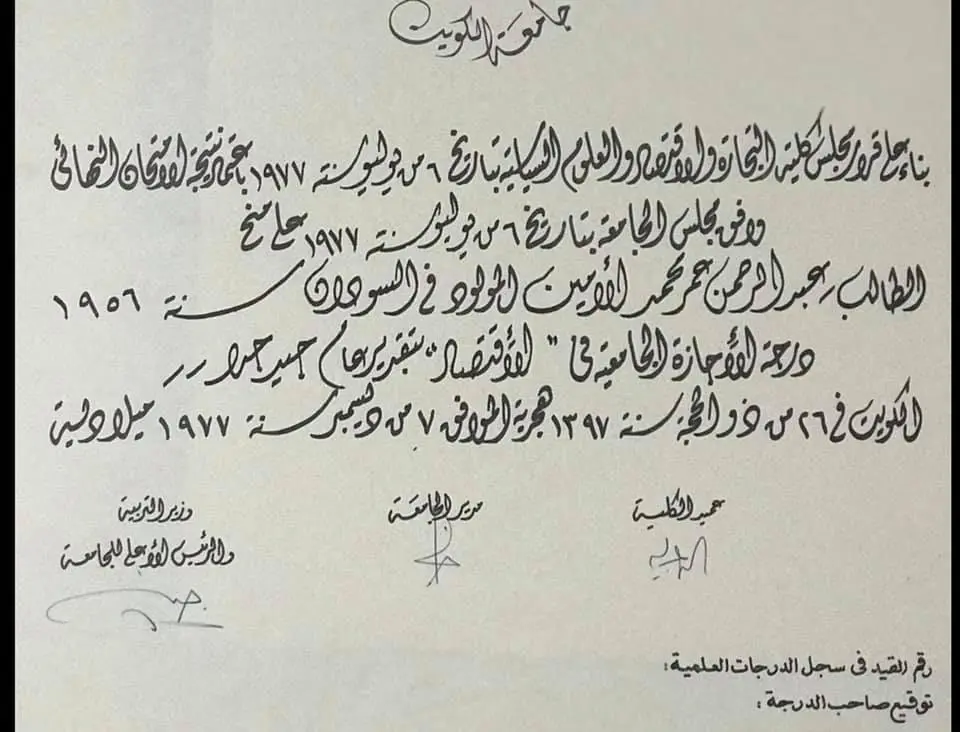 جامعة الكويت
بناء على قرار مجلس كلية التجارة والاقتصاد والعلوم السياسية بتاريخ ٦ من يوليو سنة ١٩٧٧ باعتماد نتيجة الامتحان النهائي
وافق مجلس الجامعة بتاريخ ٦ من يوليو سنة ١٩٧٧ على منح
الطالب عبد الرحمن عمر محمد الأمين المولود في السودان سنة ١٩٥٦
درجة الأجازة الجامعية في "الأقتصاد" بتقدير عام جيد جدا
الكويت في ٢٦ من ذو الحجة سنة ١٣٩٧ هجرية الموافق ٧ من ديسمبر سنة ١٩٧٧ ميلادية
عميد الكلية
مدير الجامعة
وزير التربية
والرئيس الأعلى للجامعة
رقم القيد فى سجل الدرجات العلمية :
توقيع صاحب الدرجة :